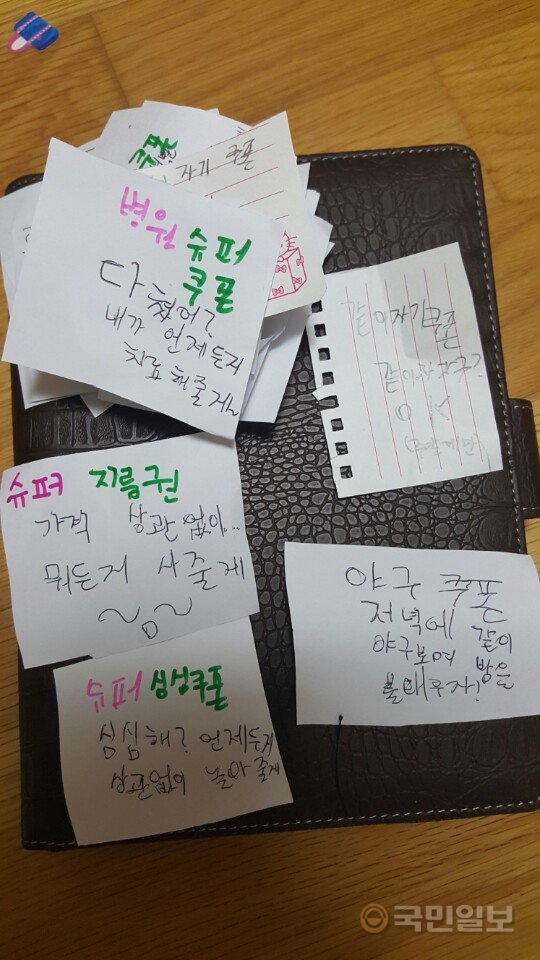 쿠폰
자기 쿠폰
병원 슈퍼
쿠폰
다쳤어?
내가 언제든지
치료해줄게~
같이자기쿠폰
같이잘꺼구?
OK
슈퍼 지름권
가격 상관없이..
뭐든지 사줄게
야구 쿠폰
저녁에 같이
야구보며 밤을
불태우자!
슈퍼 심심쿠폰
심심해? 언제든지
상관없이 놀아줄게
국민일보